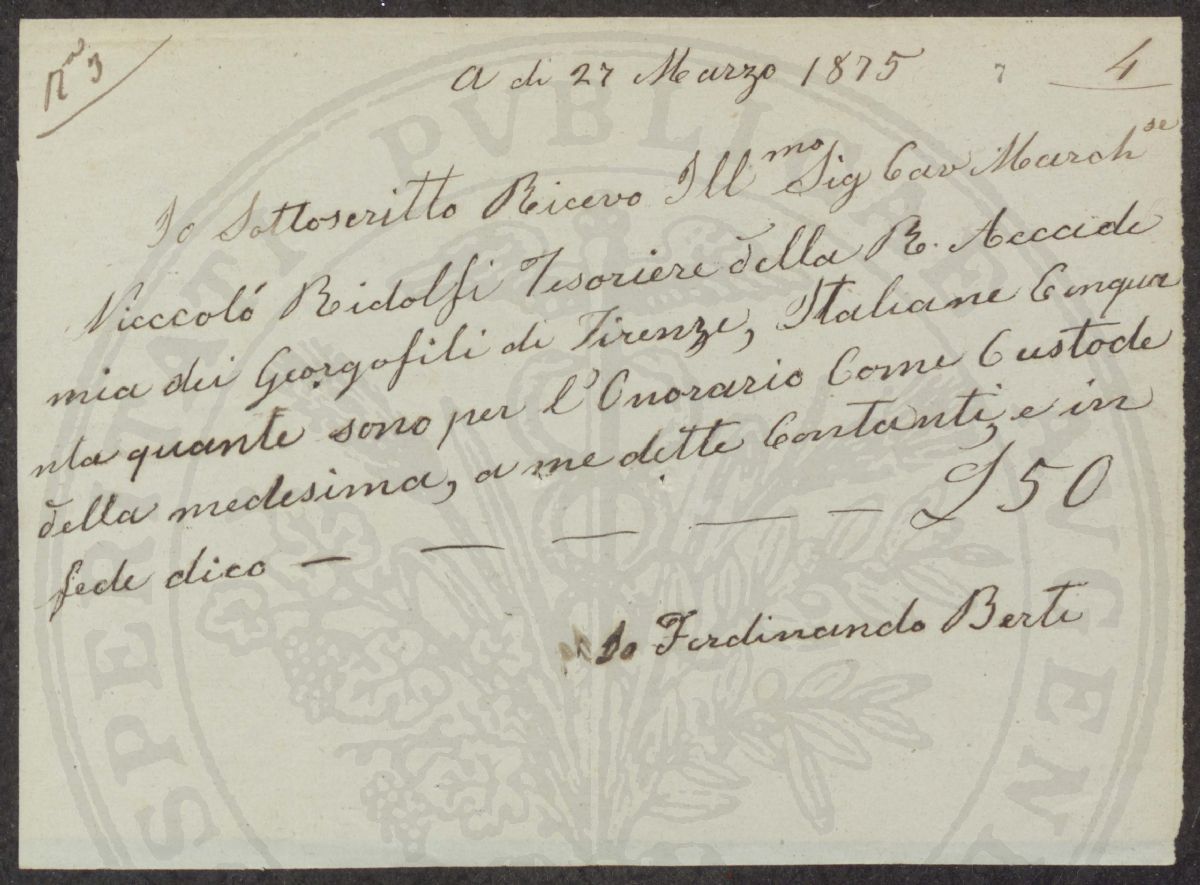 Nro 3
A di 27 Marzo 1875 7 4
Io Sottoscritto Ricevo Illmo Sig Cav Marchse
Nicccoló Ridolfi Tesoriere della R. Accade
mia dei Georgofili di Firenze, Italiane Cinqua
nta quante sono per l'Onorario Come Custode
della medesima, a me dette Contanti, e in
fede dico — — — — — £ 50
Io Ferdinando Berti
PROSPERITATI PUBLICAE AUGENDAE